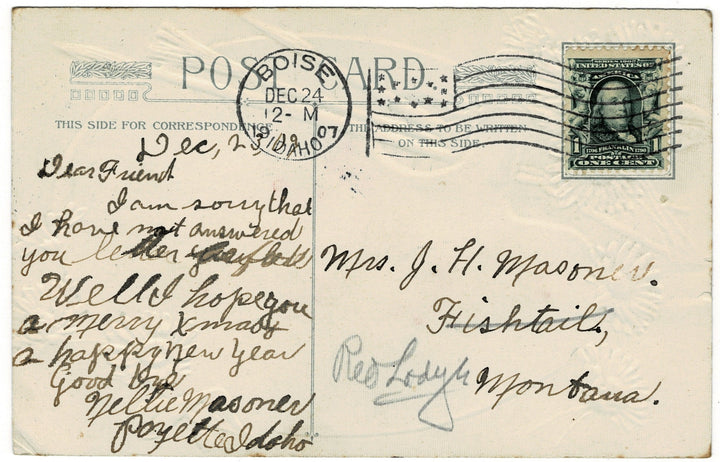 POST CARD
BOISE
DEC 24
12-M
1907
IDAHO
SERIES 1902
UNITED STATES OF
AMERICA
1790 FRANKLIN 1790
POSTAGE
1 ONE CENT 1
THIS SIDE FOR CORRESPONDENCE.
THE ADDRESS TO BE WRITTEN
ON THIS SIDE
Dec, 2
Dear Friend
I am sorry that
I have not answered
you letter
Well I hope you
a merry Xmas
a happy New Year
Good bye
Nellie Masoner
Payette Idoho
Mrs. J. H. Masoner.
Fishtail,
Red Lodge
Montana.